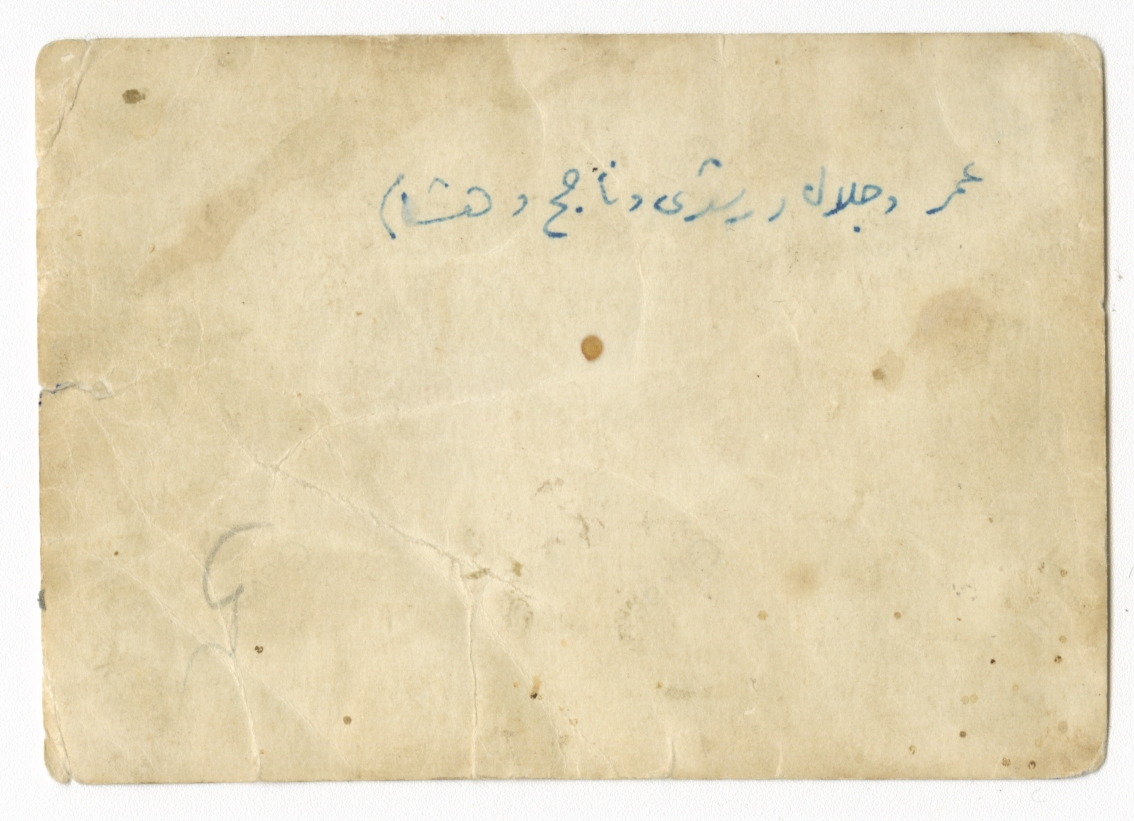 عمر وجلال ورشدى وناجح وهشام
G